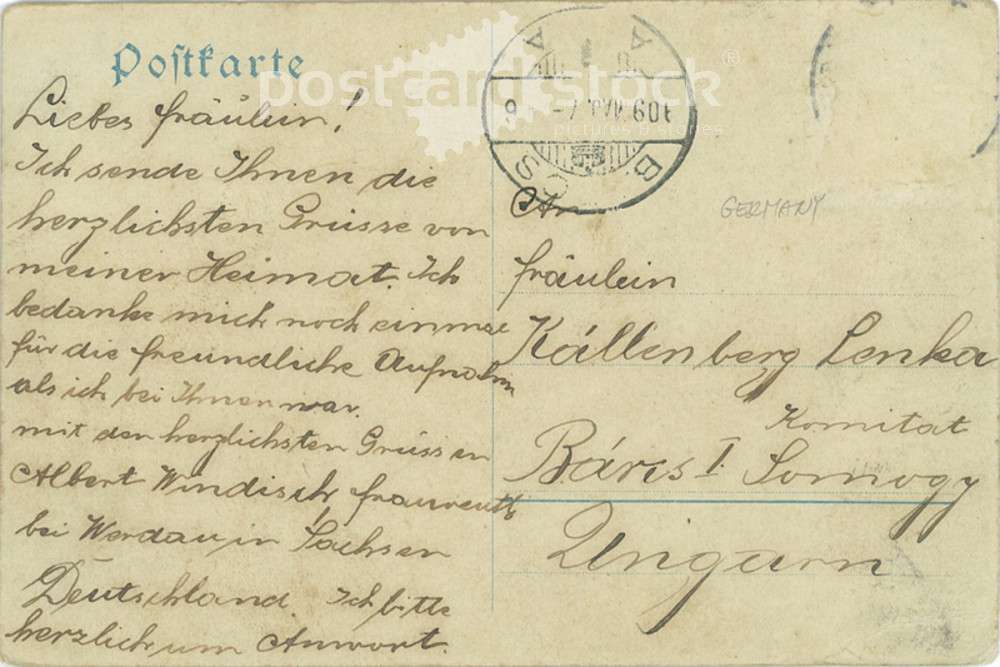 Postkarte
Liebes fräulein!
Ich sende Ihnen die
herzlichsten Grüsse von
meiner Heimat. Ich
bedanke mich noch einmal
für die freundliche Aufnahm
als ich bei Ihnen war.
mit den herzlichsten Grüssen
Albert Windisch fraureuth
bei Werdau in Sachsen
Deutschland. Ich bitte
herzlich um Anwort.
An
fräulein
Kállenberg Lenka
Komitat
Báris I. Somogy
Ungarn
GERMANY
postcard stock
pictures & stories